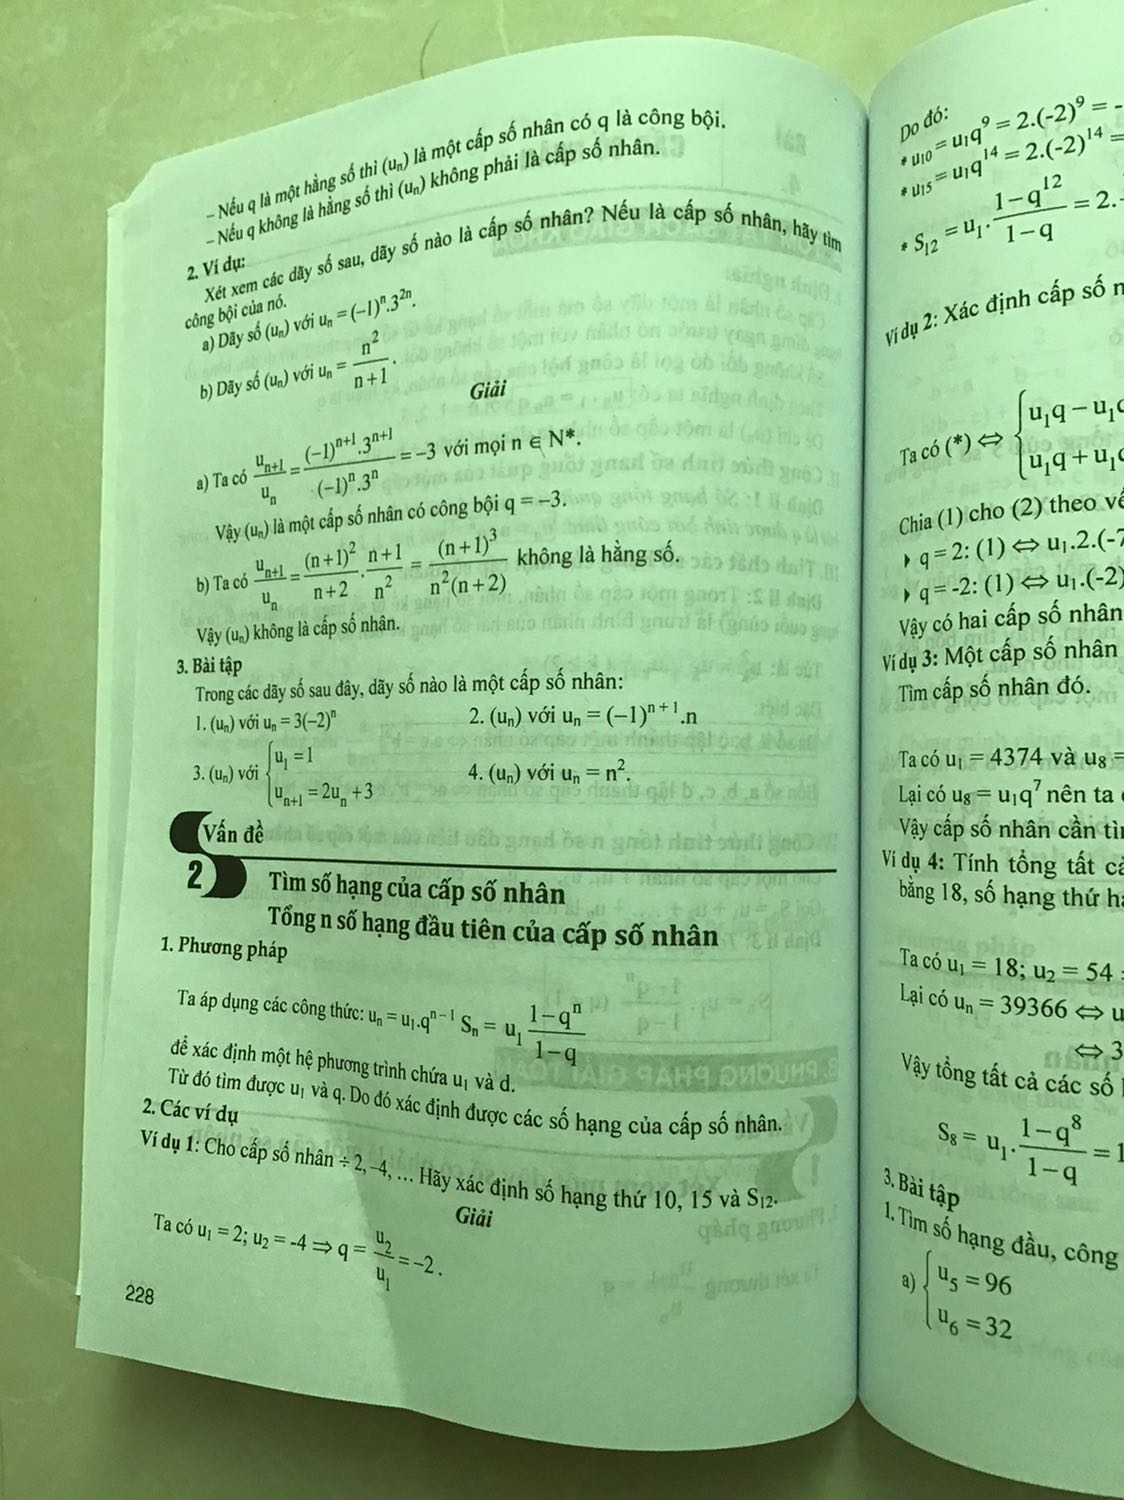 – Nếu q là một hằng số thì (uₙ) là một cấp số nhân có q là công bội.
– Nếu q không là hằng số thì (uₙ) không phải là cấp số nhân.
2. Ví dụ:
Xét xem các dãy số sau, dãy số nào là cấp số nhân? Nếu là cấp số nhân, hãy tìm
công bội của nó.
a) Dãy số (uₙ) với uₙ = (–1)ⁿ.3²ⁿ.
b) Dãy số (uₙ) với uₙ = n²/(n+1).
Giải
a) Ta có uₙ₊₁/uₙ = (–1)ⁿ⁺¹.3ⁿ⁺¹/(–1)ⁿ.3ⁿ = –3 với mọi n ∈ N*.
Vậy (uₙ) là một cấp số nhân có công bội q = –3.
b) Ta có uₙ₊₁/uₙ = (n+1)²/(n+2) . (n+1)/n² = (n+1)³/n²(n+2) không là hằng số.
Vậy (uₙ) không là cấp số nhân.
3. Bài tập
Trong các dãy số sau đây, dãy số nào là một cấp số nhân:
1. (uₙ) với uₙ = 3(–2)ⁿ 2. (uₙ) với uₙ = (–1)ⁿ⁺¹.n
3. (uₙ) với { u₁ = 1
uₙ₊₁ = 2uₙ + 3 4. (uₙ) với uₙ = n².
Vấn đề
2 Tìm số hạng của cấp số nhân
Tổng n số hạng đầu tiên của cấp số nhân
1. Phương pháp
Ta áp dụng các công thức: uₙ = u₁.qⁿ⁻¹ Sₙ = u₁ (1–qⁿ)/(1–q)
để xác định một hệ phương trình chứa u₁ và d.
Từ đó tìm được u₁ và q. Do đó xác định được các số hạng của cấp số nhân.
2. Các ví dụ
Ví dụ 1: Cho cấp số nhân ÷ 2, –4, … Hãy xác định số hạng thứ 10, 15 và S₁₂.
Giải
Ta có u₁ = 2; u₂ = -4 ⇒ q = u₂/u₁ = –2.
228
Do đó:
* u₁₀ = u₁q⁹ = 2.(-2)⁹ = -
* u₁₅ = u₁q¹⁴ = 2.(-2)¹⁴ =
* S₁₂ = u₁. (1–q¹²)/(1–q) = 2.
Ví dụ 2: Xác định cấp số n
Ta có (*) ⇔ { u₁q – u₁q
u₁q + u₁q
Chia (1) cho (2) theo vế
q = 2: (1) ⇔ u₁.2.(-7
q = -2: (1) ⇔ u₁.(-2)
Vậy có hai cấp số nhân
Ví dụ 3: Một cấp số nhân
Tìm cấp số nhân đó.
Ta có u₁ = 4374 và u₈ =
Lại có u₈ = u₁q⁷ nên ta
Vậy cấp số nhân cần tìm
Ví dụ 4: Tính tổng tất cả
bằng 18, số hạng thứ
Ta có u₁ = 18; u₂ = 54
Lại có uₙ = 39366 ⇔ u
⇔ 3
Vậy tổng tất cả các số
S₈ = u₁. (1–q⁸)/(1–q) = 1
3. Bài tập
1. Tìm số hạng đầu, công
a) { u₅ = 96
u₆ = 32